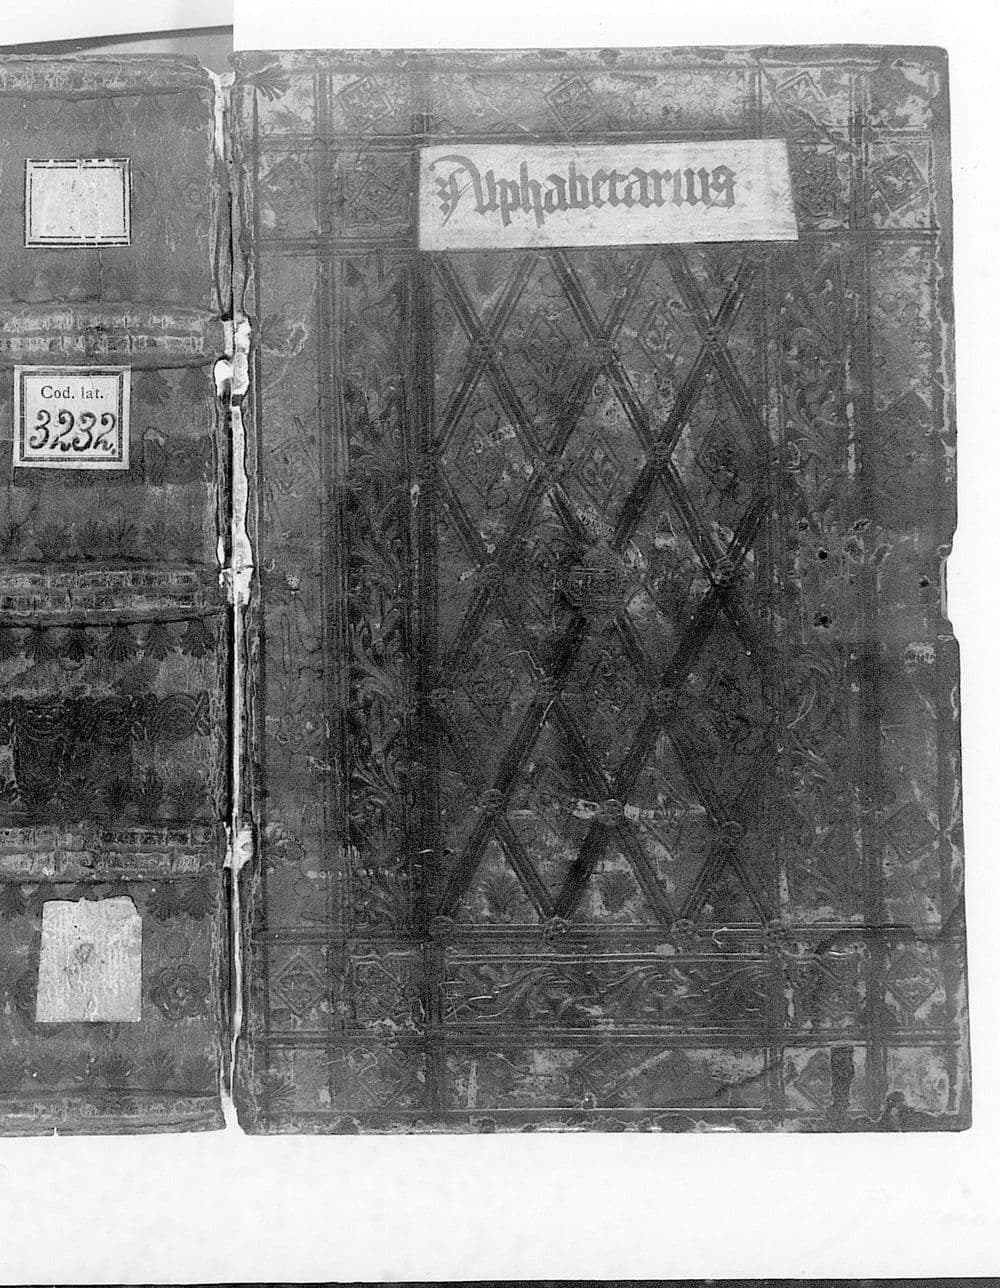 Alphabetarius
Cod. lat.
3232.